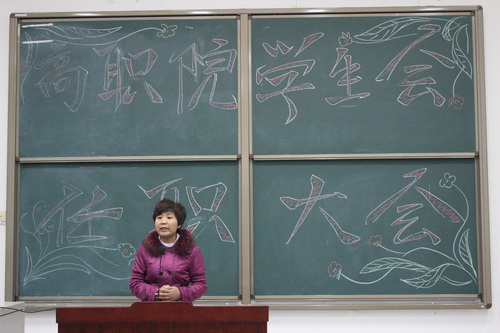 高职院学生会
任职大会